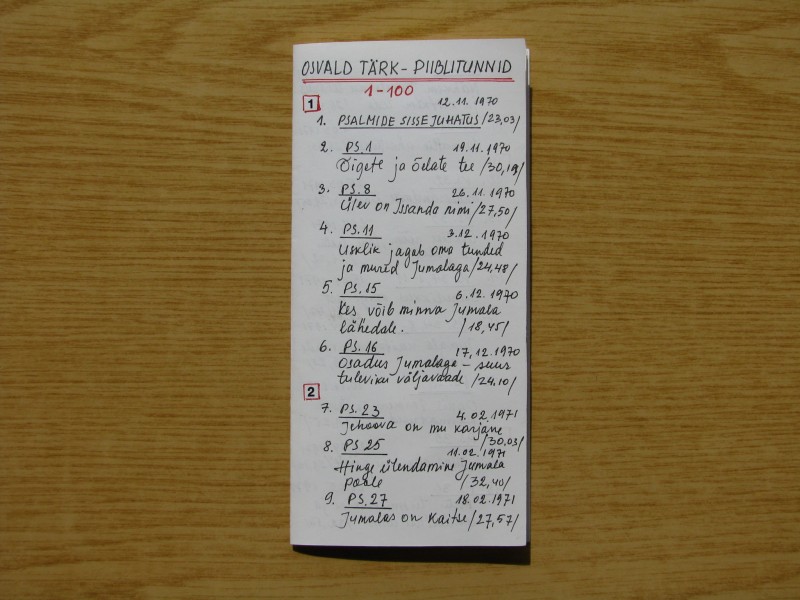 OSVALD TÄRK - PIIBLITUNNID
1-100
1
12.11.1970
1. PSALMIDE SISSEJUHATUS /23,03/
2. PS.1 19.11.1970
Õigete ja õelate tee /30,19/
3. PS.8 26.11.1970
Ülev on Issanda nimi /27,50/
4. PS.11 3.12.1970
Usklik jagab oma tunded
ja mured Jumalaga /24,48/
5. PS.15 6.12.1970
Kes võib minna Jumala
lähedale. /18,45/
6. PS.16 17.12.1970
Osadus Jumalaga - suur
tuleviku väljavaade /24,10/
2
7. PS.23 4.02.1971
Jehoova on mu karjane
/30,03/
8. PS 25 11.02.1971
Hinge ülendamine Jumala
poole /32,40/
9. PS.27 18.02.1971
Jumalas on kaitse /27,57/